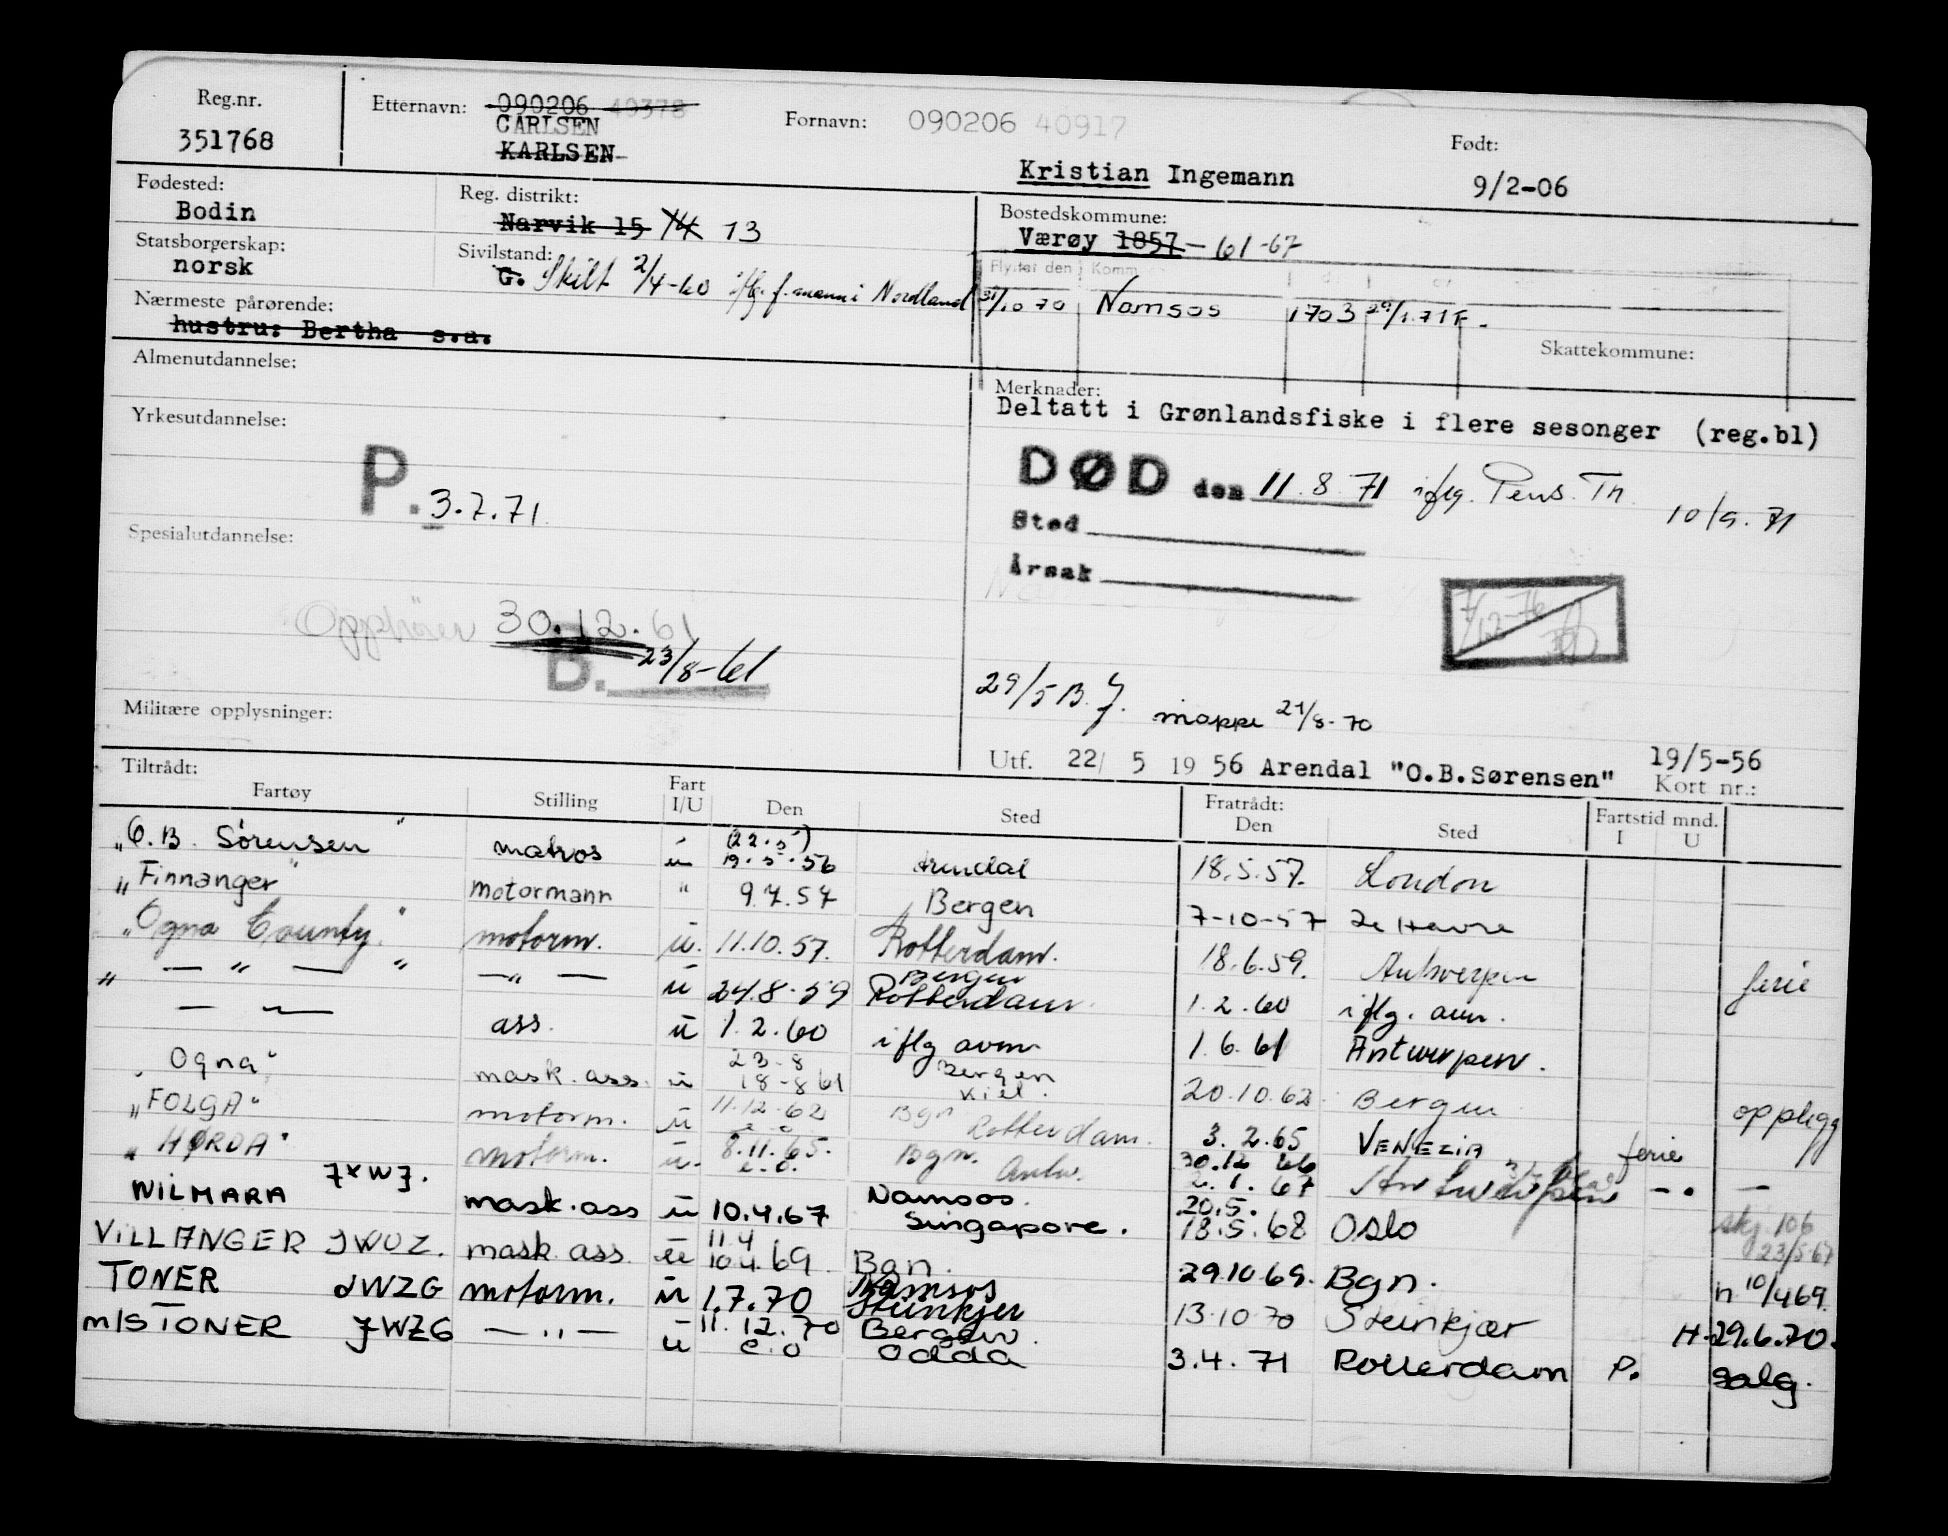 Reg.nr.
351768
Etternavn: 090206 40378
CARLSEN
KARLSEN
Fornavn: 090206 40917
Kristian Ingemann
Født:
9/2-06
Fødested:
Bodin
Reg. distrikt:
Narvik 15 14 13
Bostedskommune:
Værøy 1857 - 61-67
Statsborgerskap:
norsk
Sivilstand:
G. Skilt 2/4-60 iflg. f.mann i Nordland
Flyttet den Komm
31/10 70 Namsos 1703 29/1.71 F.
Nærmeste pårørende:
hustru: Bertha s.a.
Skattekommune:
Almenutdannelse:
Merknader:
Deltatt i Grønlandsfiske i flere sesonger (reg.bl)
Yrkesutdannelse:
P. 3.7.71
DØD den 11.8.71 iflg. Pens. Tr. 10/9.71
Sted
Årsak
Spesialutdannelse:
7/12-76
Opphører 30.12.61
B. 23/8-61
29/5 B. mappe 21/8-70
Militære opplysninger:
Utf. 22/ 5 19 56 Arendal "O.B.Sørensen" 19/5-56
Kort nr.:
Tiltrådt:
Fartøy Stilling Fart I/U Den Sted Fratrådt: Den Sted Fartstid mnd. I U
"O.B. Sørensen" matros u (22.5) 19.5.56 Arendal 18.5.57. London
"Finnanger" motormann " 9.7.57 Bergen 7-10-57 Le Havre
"Ogna County" motorm. u. 11.10.57. Rotterdam. 18.6.59. Antwerpen ferie
" — " — " — " — u 24.8.59 Bergen Rotterdam. 1.2.60 iflg. avm.
— " — ass. u 1.2.60 iflg avm 1.6.61 Antwerpen.
"Ogna" mask.ass. u 23-8 18-8 61 Bergen Kiel. 20.10.62 Bergen opplegg
"FOLGA" motorm. u 11.12.62 e.o. Bgn Rotterdam. 3.2.65 VENEZIA ferie
"HØRDA" motorm. u. 8.11.65. e.o. Bgn. Antw. 30.12 66 2.1.67 Antwerpen — . —
WILMARA JXWJ. mask.ass u 10.4.67 Namsos. Singapore. 20.5. 18.5.68 Oslo skj. 106 23/5 67
VILLANGER JWUZ. mask ass. u 11.4 10.4.69. Bgn. 29.10 69. Bgn. h 10/4 69.
TONER JWZG motorm. u 1.7.70 Namsos Steinkjer 13.10 70 Steinkjær H-29.6.70.
M/S TONER JWZG — " — u 11.12.70 e.o Bergen. Odda 3.4.71 Rotterdam P. salg.